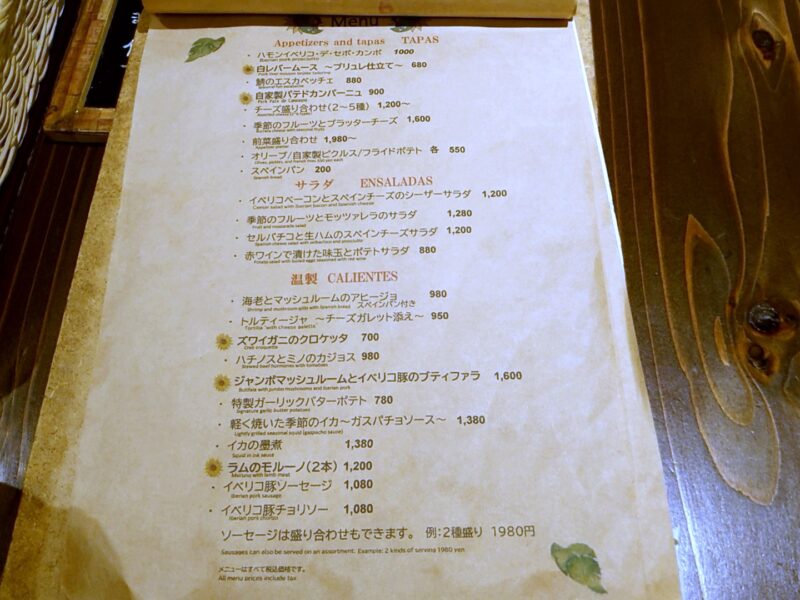 Menu
Appetizers and tapas TAPAS
・ハモンイベリコ・デ・セボ・カンポ 1000
Iberian pork prosciutto
白レバームース ～ブリュレ仕立て～ 680
・鯖のエスカベッチェ 880
自家製パテドカンパーニュ 900
・チーズ盛り合わせ(2～5種) 1,200～
・季節のフルーツとブラッターチーズ 1,600
Burrata cheese with seasonal fruits
・前菜盛り合わせ 1,980～
Appetizer platter
・オリーブ/自家製ピクルス/フライドポテト 各 550
Olives, pickles, and french fries 550 yen each
・スペインパン 200
Spanish bread
サラダ ENSALADAS
・イベリコベーコンとスペインチーズのシーザーサラダ 1,200
Caesar salad with Iberian bacon and Spanish cheese
・季節のフルーツとモッツァレラのサラダ 1,280
Fruit and mozzarella salad
・セルバチコと生ハムのスペインチーズサラダ 1,200
Spanish cheese salad with selbachico and prosciutto
・赤ワインで漬けた味玉とポテトサラダ 880
Potato salad with boiled eggs seasoned with red wine
温製 CALIENTES
・海老とマッシュルームのアヒージョ スペインパン付き 980
Shrimp and mushroom ajillo with Spanish bread
・トルティージャ ～チーズガレット添え～ 950
Tortilla "with cheese galette"
ズワイガニのクロケッタ 700
Crab croquette
・ハチノスとミノのカジョス 980
Stewed beef hormones with tomatoes
ジャンボマッシュルームとイベリコ豚のブティファラ 1,600
Butifala with jumbo mushrooms and Iberian pork
・特製ガーリックバターポテト 780
Signature garlic butter potatoes
・軽く焼いた季節のイカ～ガスパチョソース～ 1,380
Lightly grilled seasonal squid (gaspacho sauce)
・イカの墨煮 1,380
Squid in ink sauce
ラムのモルーノ(2本) 1,200
Moruno with lamb meat
・イベリコ豚ソーセージ 1,080
Iberian pork sausage
・イベリコ豚チョリソー 1,080
Iberian pork chorizo
ソーセージは盛り合わせもできます。 例：2種盛り 1980円
Sausages can also be served on an assortment. Example: 2 kinds of serving 1980 yen
メニューはすべて税込価格です。
All menu prices include tax